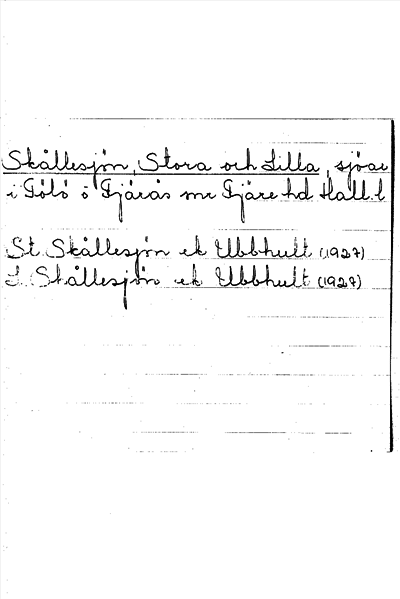 Skållesjön, Stora och Lilla, sjöar
i Gölö ö Fjärås sn Fjäre hd Hall. l
St. Skållesjön ek Ubbhult (1927)
L. Skållesjön ek Ubbhult (1927)